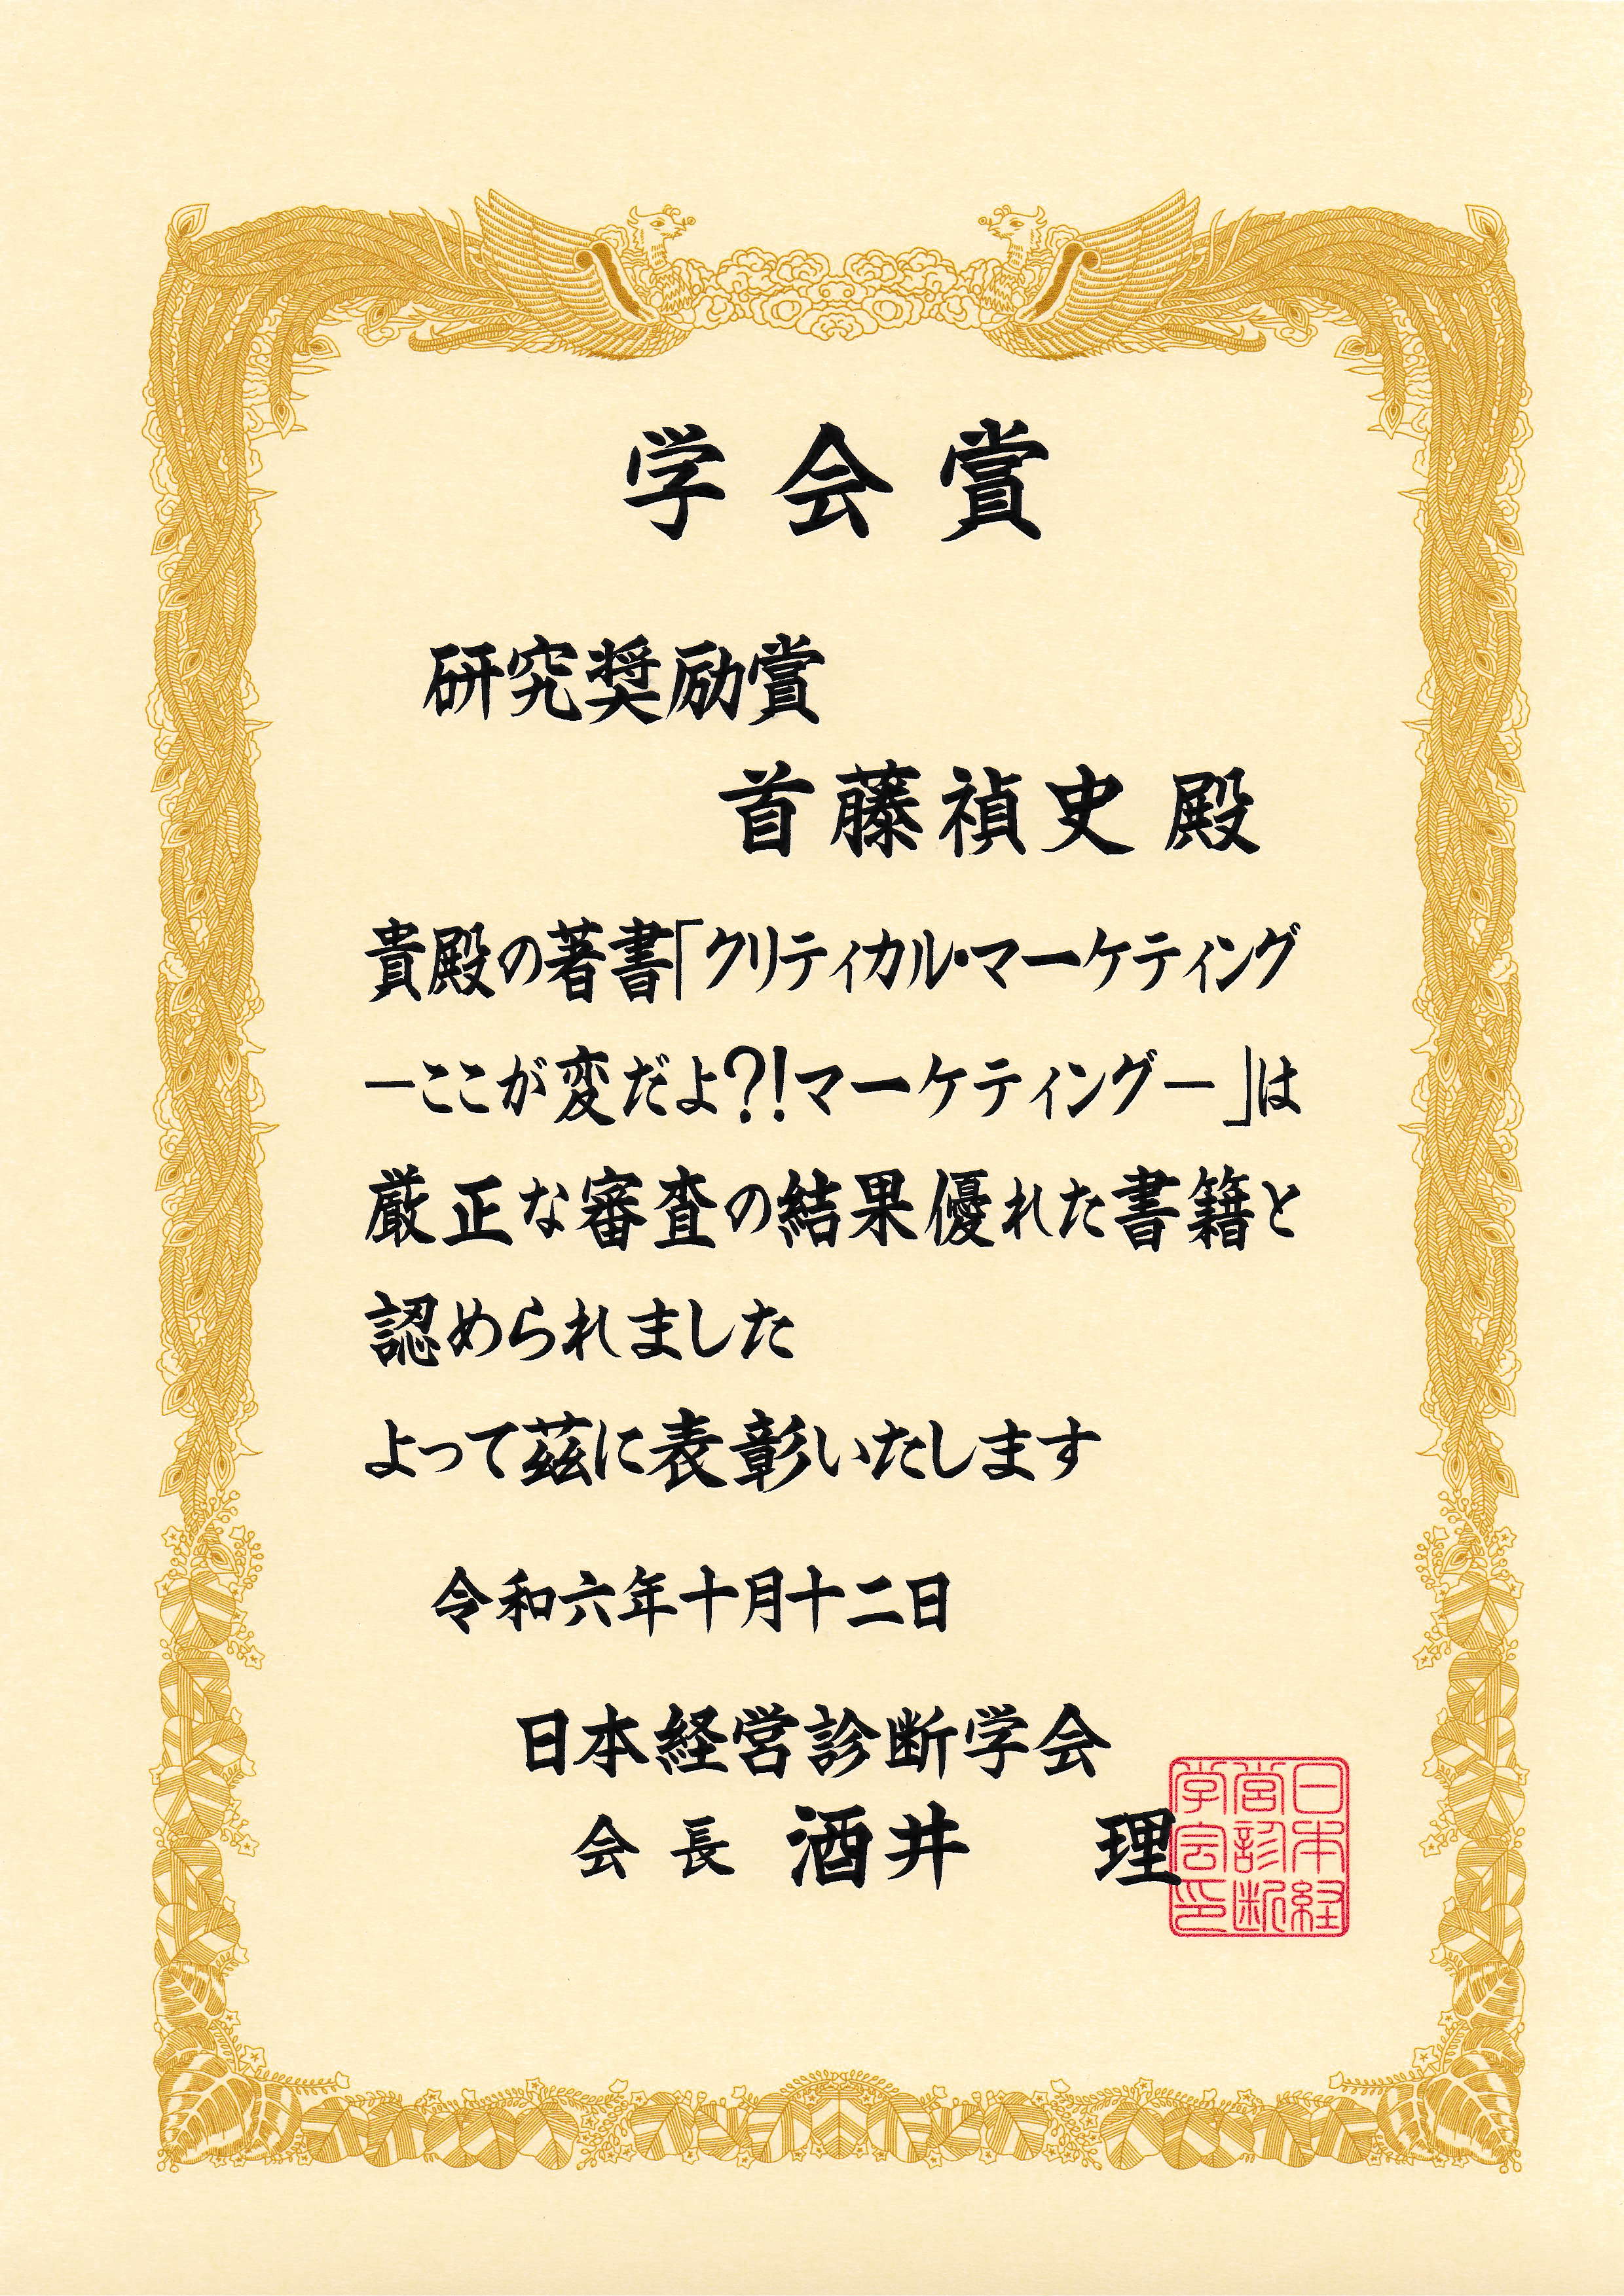 学会賞
研究奨励賞
首藤禎史 殿
貴殿の著書「クリティカル・マーケティング
－ここが変だよ?!マーケティング－」は
厳正な審査の結果優れた書籍と
認められました
よって茲に表彰いたします
令和六年十月十二日
日本経営診断学会
会長 酒井 理
日本経
営診断
学会印